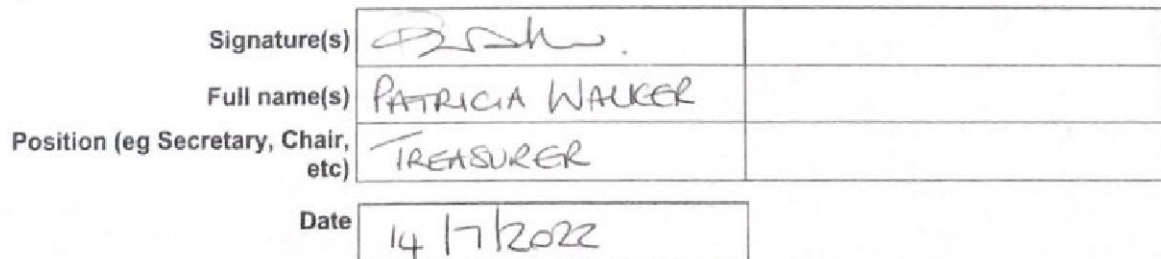 Signature(s)
Full name(s) PATRICIA WALKER
Position (eg Secretary, Chair,
etc) TREASURER
Date 14/7/2022